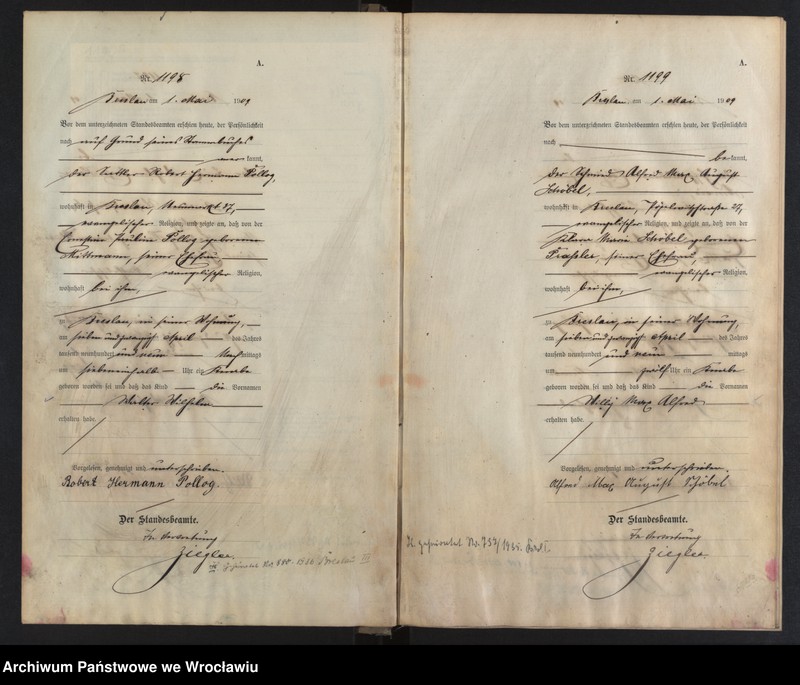 A.
Nr. 1198
Breslau am 1. Mai 1909
Vor dem unterzeichneten Standesbeamten erschien heute, der Persönlichkeit
nach auf Grund seines Stammbuches
kannt,
der Robert Hermann Pollog,
wohnhaft in Breslau, Neumarkt 27,
evangelischer Religion, und zeigte an, daß von der
Pauline Pollog geborenen
Wittmann, seiner Ehefrau,
evangelischer Religion,
wohnhaft bei ihm,
zu Breslau, in seiner Wohnung,
am sieben und zwanzigsten April des Jahres
tausend neunhundert und neun Nachmittags
um siebeneinhalb Uhr ein Knabe
geboren worden sei und daß das Kind die Vornamen
Walter Wilhelm
erhalten habe.
Vorgelesen, genehmigt und unterschrieben.
Robert Hermann Pollog.
Der Standesbeamte.
In Vertretung
Ziegler.
Breslau III
A.
Nr. 1199
Breslau am 1. Mai 1909
Vor dem unterzeichneten Standesbeamten erschien heute, der Persönlichkeit
nach
bekannt,
der Schmied Alfred Max August
Schöbel,
wohnhaft in Breslau, 27,
evangelischer Religion, und zeigte an, daß von der
Marie Schöbel geborenen
seiner Ehefrau,
evangelischer Religion,
wohnhaft bei ihm,
zu Breslau, in seiner Wohnung,
am sieben und zwanzigsten April des Jahres
tausend neunhundert und neun mittags
um zwölf Uhr ein Knabe
geboren worden sei und daß das Kind die Vornamen
Willy Max Alfred
erhalten habe.
Vorgelesen, genehmigt und unterschrieben.
Alfred Max August Schöbel
Der Standesbeamte.
In Vertretung
Ziegler.
Archiwum Państwowe we Wrocławiu